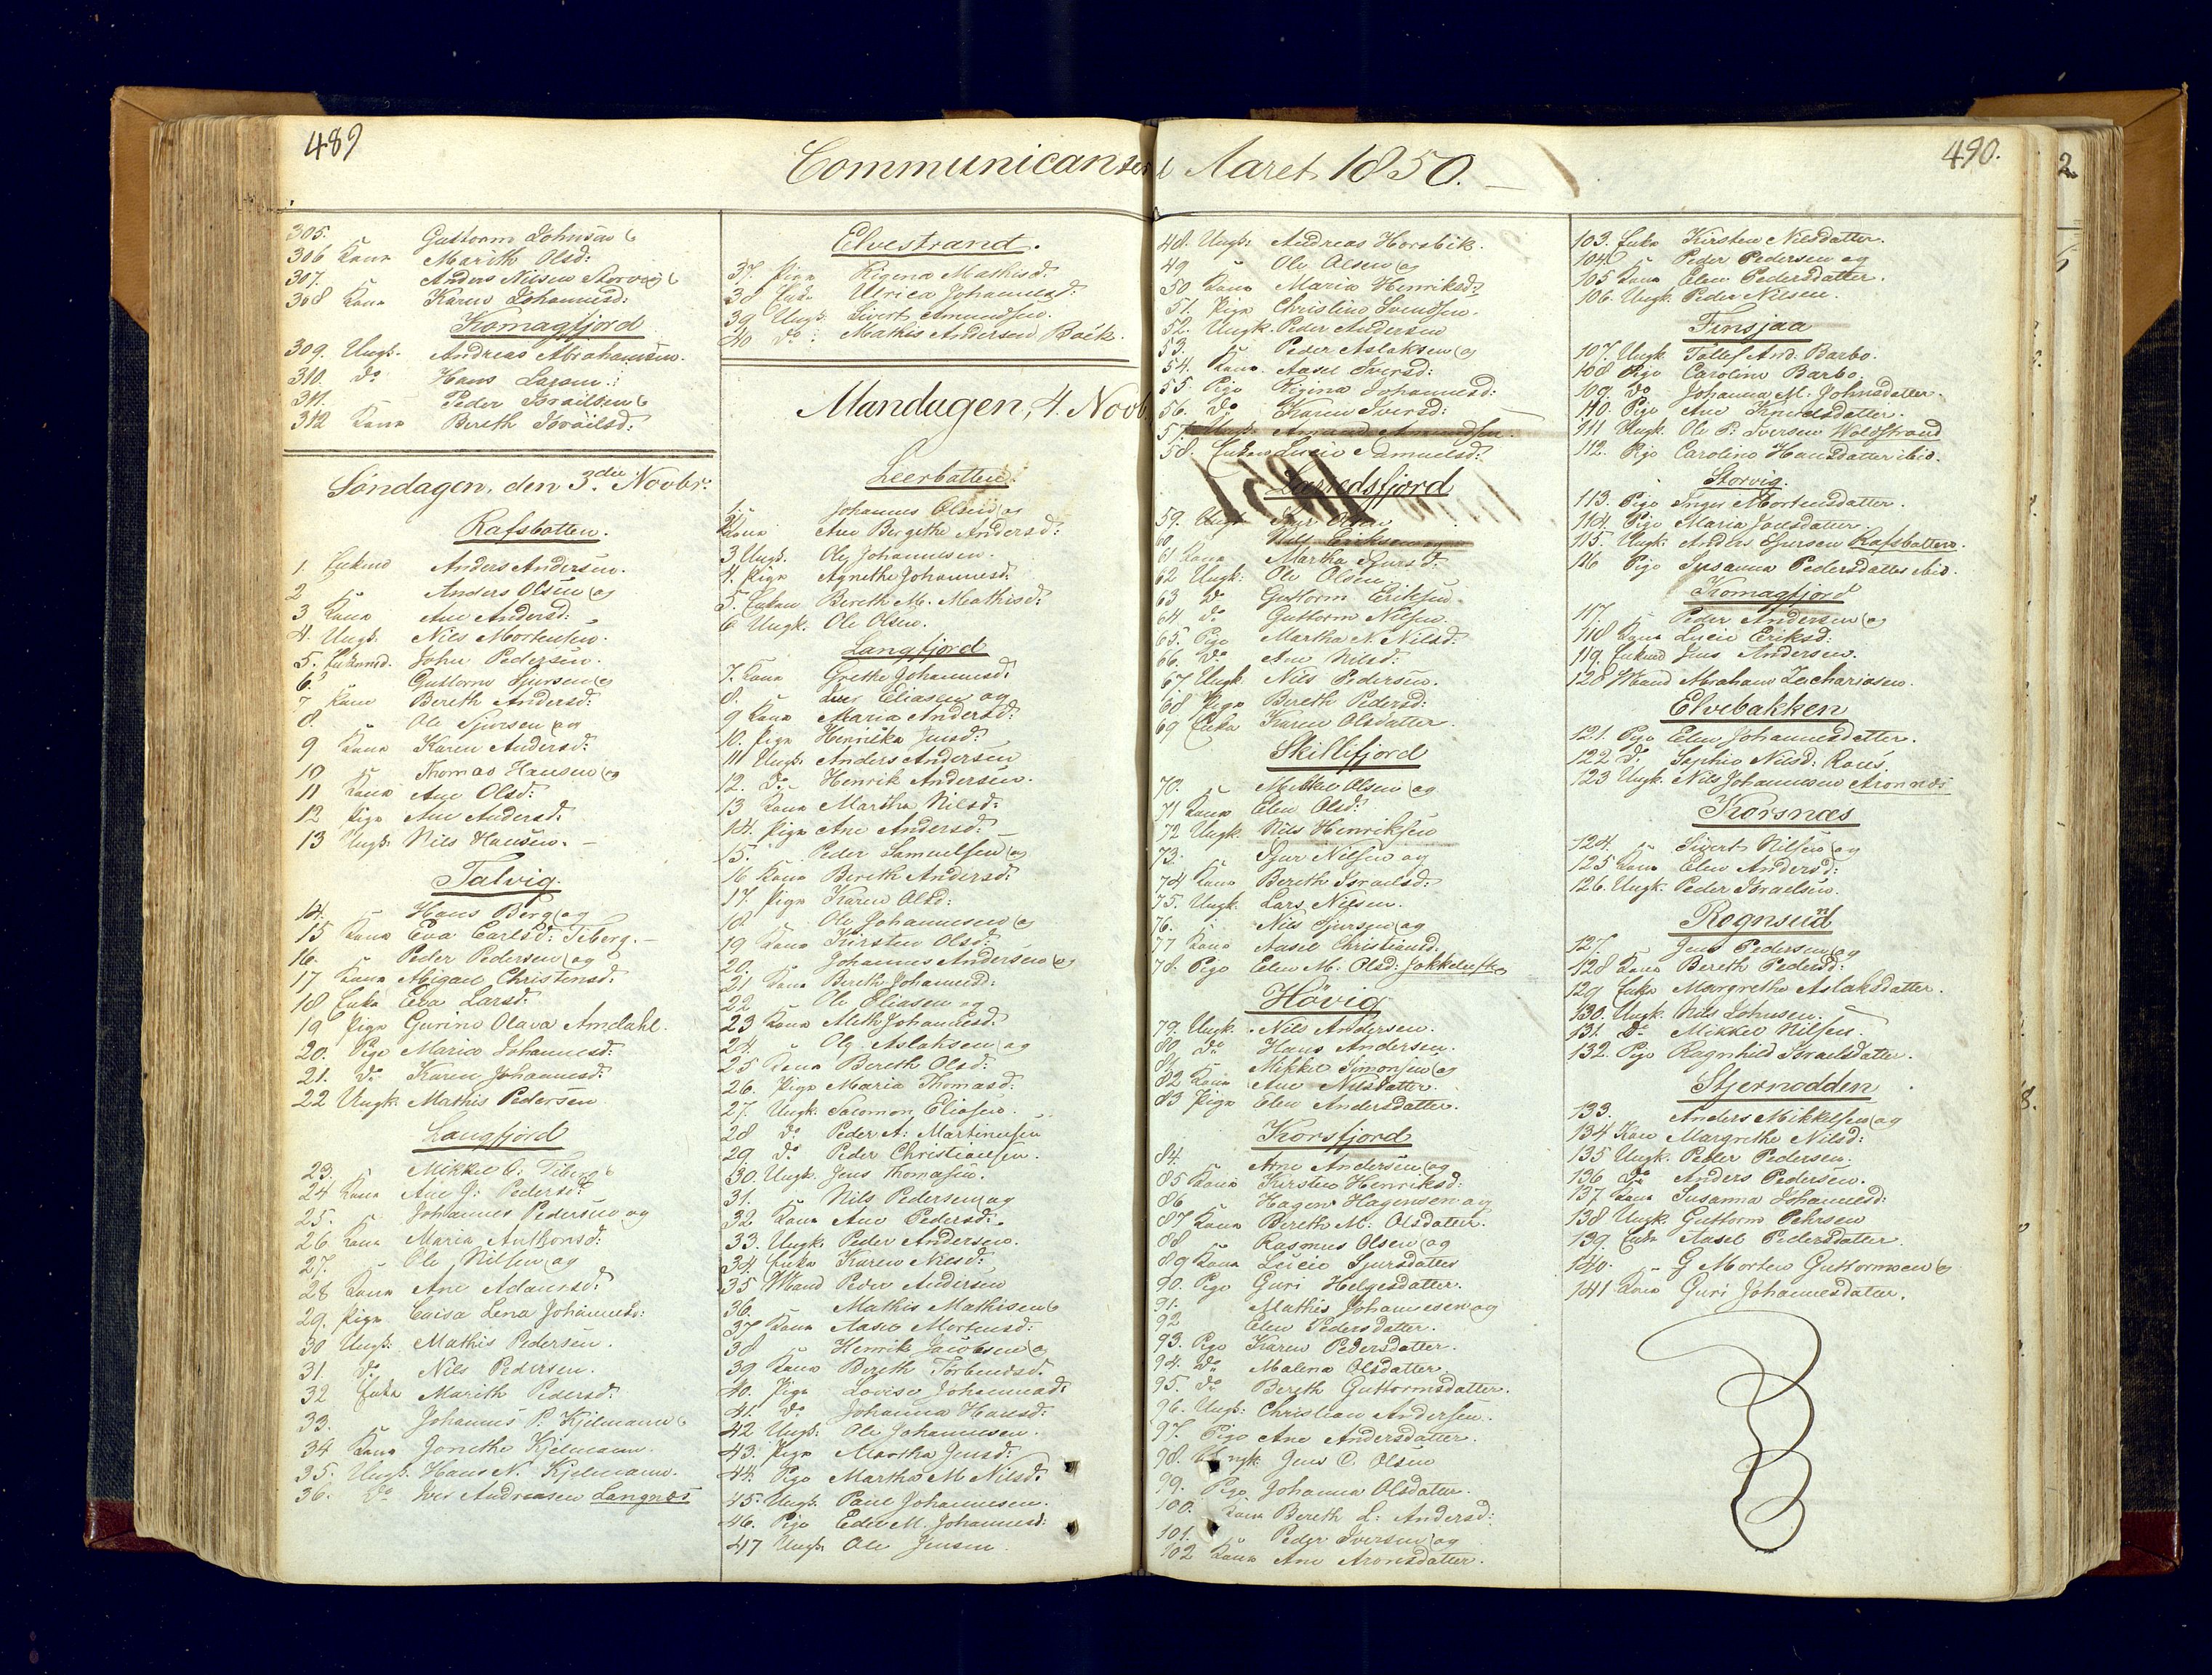 489
Communicanter
305. Guttorm Johnsen
306 Kone Marith Olsd:
307. Anders Nilsen Storvig
308 Kone Karen Johannesd:
Komagfjord
309. Ungk. Andreas Abrahamsen.
310. do Hans Larsen
311. Peder Israilsen
312 Kone Bereth Israilsd:
Søndagen, den 3die Novbr:
Rafsbotten.
1. Enkmd Anders Andersen.
2 " Anders Olsen og
3 Kone Ane Andersd:
4. Ungk. Nils Mortensen.
5. Enkemd. John Pedersen.
6. " Guttorm Sjursen og
7 Kone Bereth Andersd:
8. " Ole Sjursen og
9 Kone Karen Andersd:
10 " Thomas Hansen og
11 Kone Ane Olsd:
12 Pige Ane Andersd:
13 Ungk. Nils Hansen. –
Talvig.
14. " Hans Berg og
15 Kone Eva Carlsd: Tiberg. –
16. " Peder Pedersen og
17 Kone Abigael Christensd:
18 Enke Eva Larsd:
19 Pige Gurine Olava Amdahl.
20. Pige Maria Johannesd:
21. do Karen Johannesd:
22 Ungk. Mathis Pedersen
Langfjord
23. " Mikkel O: Tiberg
24 Kone Ane J: Pedersd:
25. " Johannes Pedersen og
26 Kone Maria Anthonsd:
27. " Ole Nilsen og
28 Kone Ane Adamsd:
29. Pige Caisa Lena Johannesd:
30 Ungk: Mathis Pedersen.
31. do Nils Pedersen.
32 Enke Marith Pedersd:
33. Johannes P: Kjelmann
34 Kone Jonetha Kjelmann.
35. Ungk. Hans N. Kjelmann.
36. do Iver Andreasen Langnæs
Elvestrand.
37. Pige Regina Mathisd:
38 Enke Ulrica Johannesd:
39 Ungk. Sivert Amundsen.
40 do: Mathis Andersen Bæck.
Mandagen, 4. Novb.
Leerbotten.
1. " Johannes Olsen og
2 Kone Ane Bergithe Andersd:
3 Ungk. Ole Johannesen.
4. Pige Agnethe Johannesd:
5. Enken Bereth M. Mathisd:
6 Ungk. Ole Olsen.
Langfjord
7. Kone Grethe Johannesd:
8. " Iver Eliasen og
9 Kone Maria Andersd:
10. Pige Henrikka Jensd:
11 Ungk. Anders Andersen
12. do Henrik Andersen.
13 Kone Martha Nilsd:
14. Pige Ane Andersd:
15. " Peder Samuelsen og
16 Kone Bereth Andersd:
17. Pige Karen Olsd:
18. " Ole Johannesen og
19 Kone Kirsten Olsd:
20. " Johannes Andersen og
21 Kone Bereth Johannesd:
22 " Ole Eliasen og
23 Kone Aleth Johannesd:
24. " Ole Aslaksen og
25 Kone Bereth Olsd:
26. Pige Maria Thomasd:
27. Ungk. Salomon Eliasen.
28 do Peder A: Martinusen
29. do Peder Christiansen.
30. Ungk. Jens Thomasen.
31. " Nils Pedersen og
32 Kone Ane Pedersd:
33. Ungk. Peder Andersen.
34. Enke Karen Nilsd:
35 Mand Peder Andersen
36. Mathis Mathisen
37 Kone Aasel Mortensd:
38 " Henrik Jacobsen og
39 Kone Bereth Torbendsd.
40. Pige Lovise Johannesd:
41. do Johanna Hansd:
42 Ungk. Ole Johannesen.
43. Pige Martha Jensd:
44. Pige Martha M. Nilsd:
45. Ungk. Paul Johannesen.
46. Pige Elen M. Johannesd:
47 Ungk. Ole Jensen
i Aaret 1850. –
490.
48. Ungk: Andreas Horsbik.
49 " Ole Olsen og
50 Kone Maria Henriksd:
51. Pige Christine Svendsen.
52. Ungk. Peder Andersen
53. " Peder Aslaksen og
54. Kone Aasel Iversd:
55. Pige Regina Johannesd:
56. do Karen Iversd:
57. Ungk. Amundsen.
58. Enken Lucie Samuelsd:
1851
Lærredsfjord
59. Ungk Sjur Olsen
60. " Nils Eriksen og
61 Kone Martha Sjursd:
62 Ungk: Ole Olsen
63 do Guttorm Eriksen
64. do Guttorm Nilsen.
65. Pige Martha N. Nilsd:
66. do Ane Nilsd:
67 Ungk. Nils Pedersen.
68 Pige Bereth Pedersd:
69 Enke Karen Olsdatter.
Skillefjord
70. " Mikkel Olsen og
71 Kone Elen Olsd:
72 Ungk. Nils Henriksen
73. " Sjur Nilsen og
74 Kone Bereth Israelsd:
75. Ungk. Lars Nilsen.
76. " Nils Sjursen og
77 Kone Aasel Christensd.
78. Pige Elen M. Olsd: Jokkeluft
Høvig
79. Ungk. Nils Andersen.
80 do Hans Andersen.
81. " Mikkel Simonsen og
82 Kone Ane Nilsdatter.
83 Pige Elen Andersdatter.
Korsfjord
84. " Arne Andersen og
85 Kone Kirsten Henriksd:
86 " Hagen Hagensen og
87 Kone Bereth M: Olsdatter.
88 " Rasmus Olsen og
89 Kone Lucie Sjursdatter
90. Pige Guri Helgesdatter.
91. Mathis Johannesen og
92 Elen Pedersdatter.
93. Pige Karen Pedersdatter.
94. do Malena Olsdatter.
95. do Bereth Guttormsdatter.
96. Ungk: Christian Andersen.
97. Pige Ane Andersdatter.
98. Ungk. Jens C. Olsen
99. Pige Johanna Olsdatter.
100. Kone Bereth L: Andersd:
101. " Peder Iversen og
102 Kone Ane Aronsdatter.
103. Enke Kirsten Nilsdatter.
104 " Peder Pedersen og
105 Kone Elen Pedersdatter.
106. Ungk. Peder Nilsen.
Finsjaa
107. Ungk. Tollef And. Barbo.
108 Pige Caroline Barbo.
109. do Johanna M. Johnsdatter.
110. Pige Ane Knudsdatter.
111 Ungk. Ole P: Iversen Woldstrand
112. Pige Caroline Hansdatter ibid.
Storvig.
113. Pige Inger Mortensdatter.
114. Pige Maria Joelsdatter
115. Ungk: Anders Sjursen Rafsbotten.
116 Pige Susanna Pedersdatter ibid.
Komagfjord
117. " Peder Andersen og
118 Kone Lucie Eriksd:
119. Enkmd Jens Andersen.
120 Mand Abraham Zachariasen.
Elvebakken
121. Pige Elen Johannesdatter.
122 do Sophie Nilsd:
123 Ungk. Nils Johannesen Aronnæs
Korsnæs
124. " Sivert Nilsen og
125 Kone Elen Andersd:
126. Ungk. Peder Israelsen.
Rognsund
127. " Jens Pedersen og
128 Kone Bereth Pedersd:
129 Enke Margrethe Aslaksdatter.
130. Ungk Nils Johnsen.
131. do Mikkel Nilsen.
132. Pige Ragnhild Israelsdatter.
Stjernodden
133. Anders Mikkelsen og
134 Kone Margrethe Nilsd:
135 Ungk. Peder Pedersen.
136 do Anders Pedersen.
137 Kone Susanna Johannesd:
138 Ungk. Guttorm Pehrsen
139. Enke Aasel Pedersdatter.
140. " G Morten Guttormsen og
141 Kone Guri Johannesdatter.
2